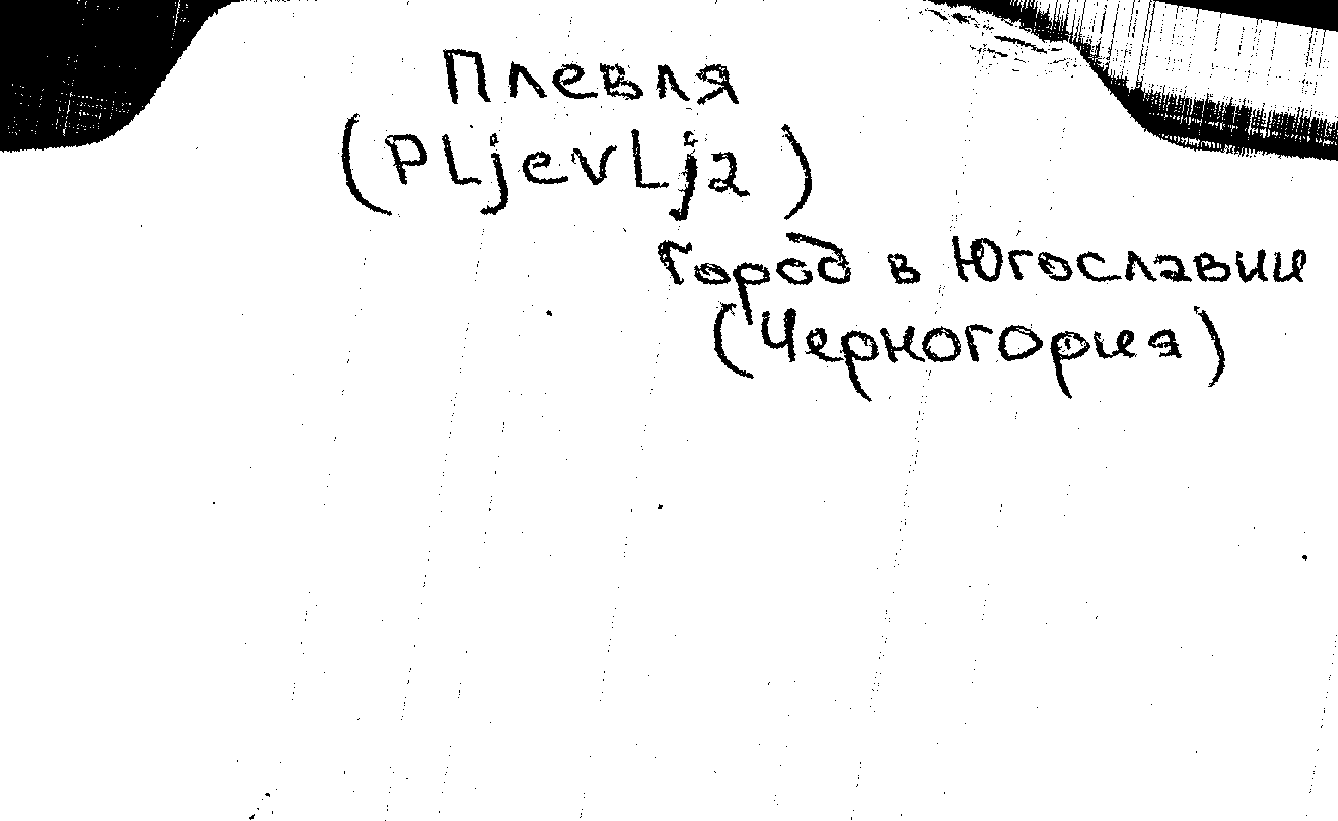 Плевля
(PLjevLja)
город в Югославии
(Черногория)